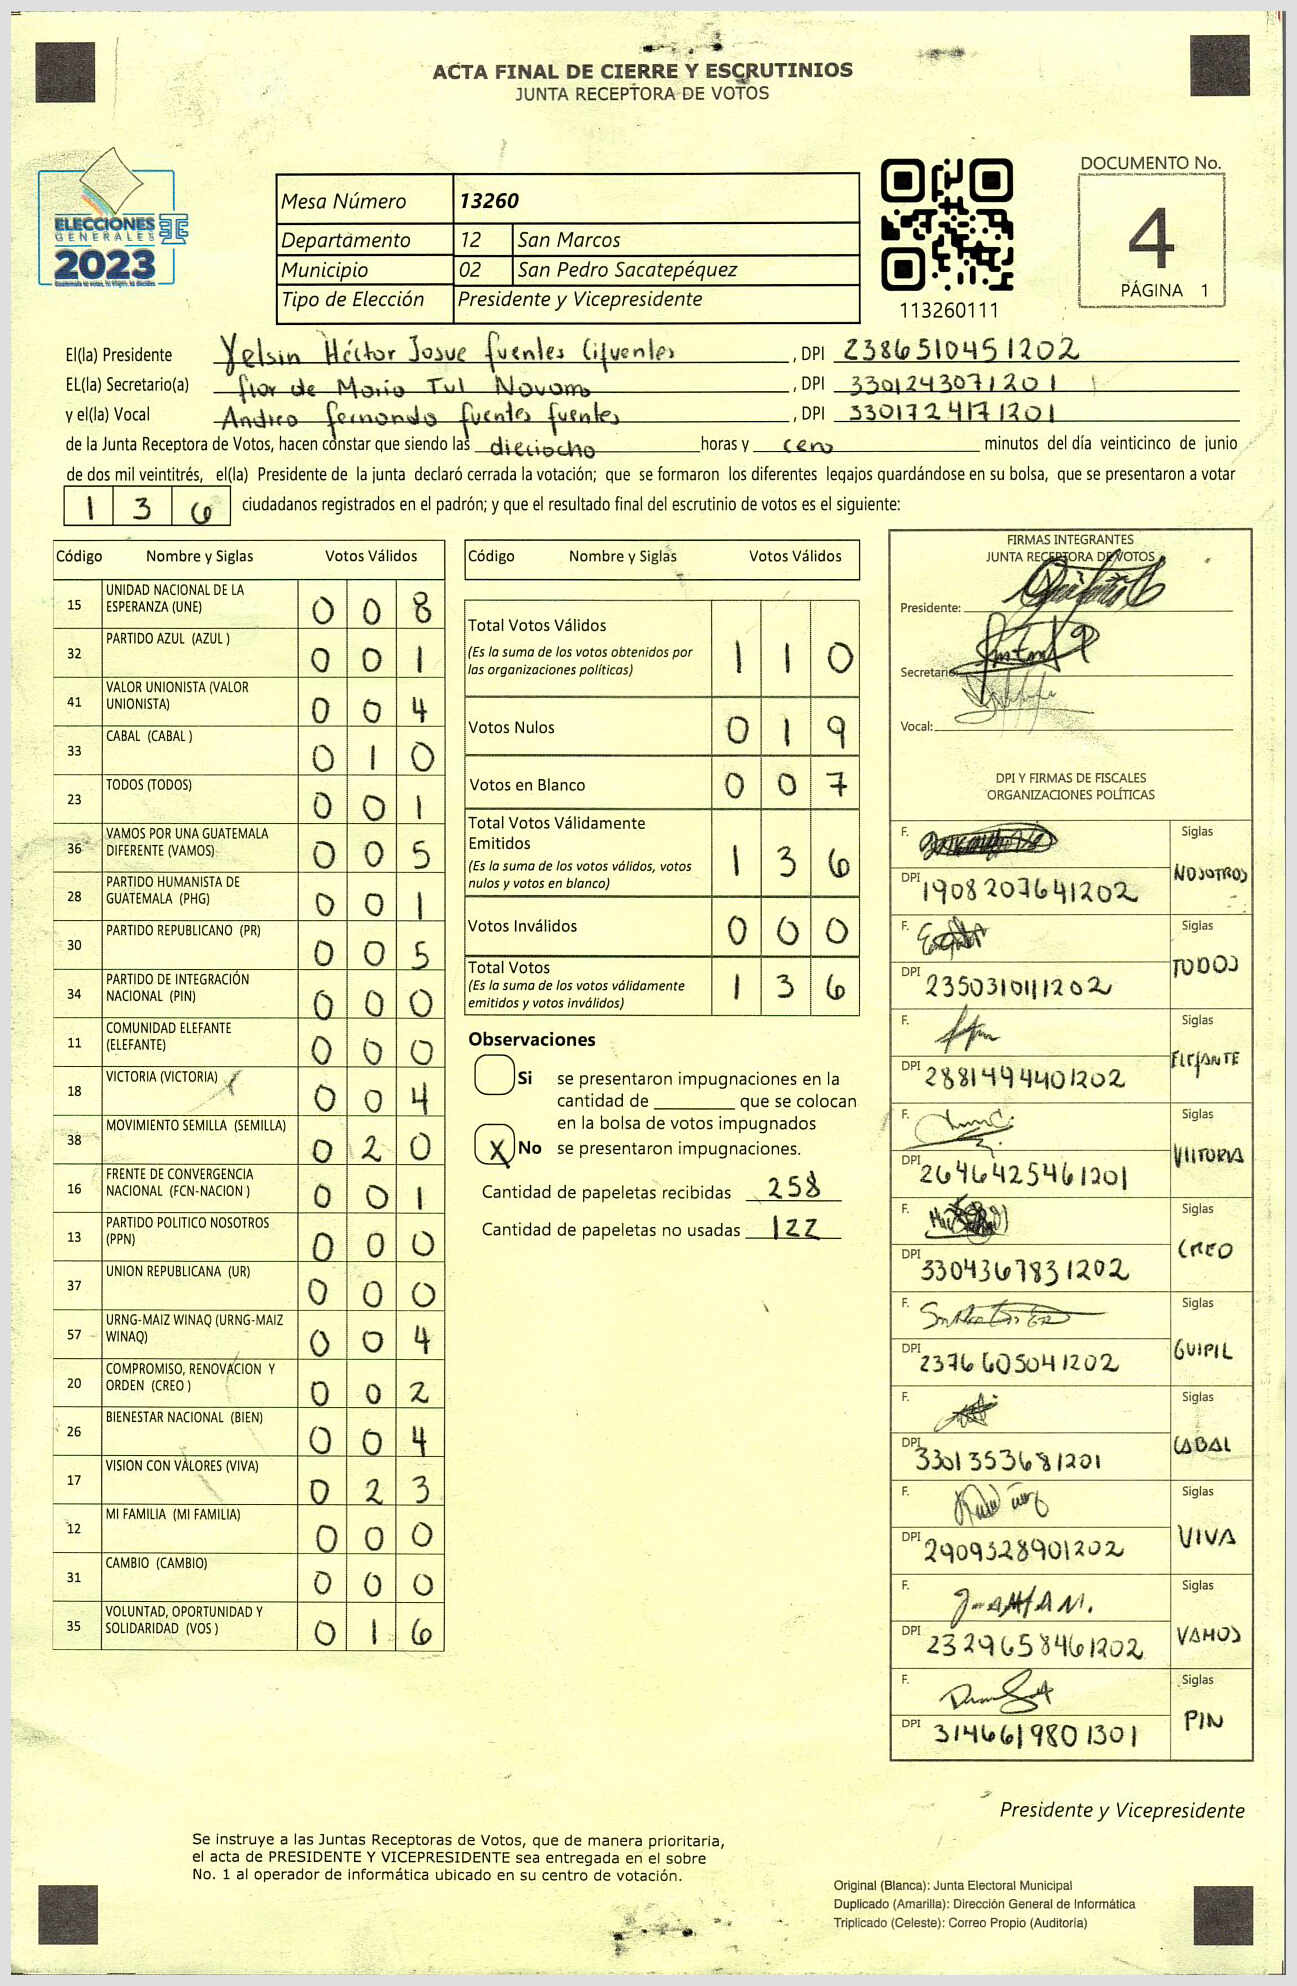 ACTA FINAL DE CIERRE Y ESCRUTINIOS
JUNTA RECEPTORA DE VOTOS
ELECCIONES
GENERALES
2023
Mesa Número 13260
Departamento 12 San Marcos
Municipio 02 San Pedro Sacatepéquez
Tipo de Elección Presidente y Vicepresidente
113260111
DOCUMENTO No.
4
PÁGINA 1
El(la) Presidente Yelsin Héctor Josue fuentes Cifuentes, DPI 2386510451202
EL(la) Secretario(a) flor de Maria Tul Navarro, DPI 3301243071201
y el(la) Vocal Andrea fernando fuentes fuentes, DPI 3301724171201
de la Junta Receptora de Votos, hacen constar que siendo las dieciocho horas y cero minutos del día veinticinco de junio
de dos mil veintitrés, el(la) Presidente de la junta declaró cerrada la votación; que se formaron los diferentes legajos guardándose en su bolsa, que se presentaron a votar
136 ciudadanos registrados en el padrón; y que el resultado final del escrutinio de votos es el siguiente:
Código Nombre y Siglas Votos Válidos
15 UNIDAD NACIONAL DE LA ESPERANZA (UNE) 008
32 PARTIDO AZUL (AZUL ) 001
41 VALOR UNIONISTA (VALOR UNIONISTA) 004
33 CABAL (CABAL ) 010
23 TODOS (TODOS) 001
36 VAMOS POR UNA GUATEMALA DIFERENTE (VAMOS) 005
28 PARTIDO HUMANISTA DE GUATEMALA (PHG) 001
30 PARTIDO REPUBLICANO (PR) 005
34 PARTIDO DE INTEGRACIÓN NACIONAL (PIN) 000
11 COMUNIDAD ELEFANTE (ELEFANTE) 000
18 VICTORIA (VICTORIA) 004
38 MOVIMIENTO SEMILLA (SEMILLA) 020
16 FRENTE DE CONVERGENCIA NACIONAL (FCN-NACION ) 001
13 PARTIDO POLITICO NOSOTROS (PPN) 000
37 UNION REPUBLICANA (UR) 000
57 URNG-MAIZ WINAQ (URNG-MAIZ WINAQ) 004
20 COMPROMISO, RENOVACION Y ORDEN (CREO ) 002
26 BIENESTAR NACIONAL (BIEN) 004
17 VISION CON VALORES (VIVA) 023
12 MI FAMILIA (MI FAMILIA) 000
31 CAMBIO (CAMBIO) 000
35 VOLUNTAD, OPORTUNIDAD Y SOLIDARIDAD (VOS ) 016
Código Nombre y Siglas Votos Válidos
Total Votos Válidos 110
(Es la suma de los votos obtenidos por
las organizaciones políticas)
Votos Nulos 019
Votos en Blanco 007
Total Votos Válidamente
Emitidos 136
(Es la suma de los votos válidos, votos
nulos y votos en blanco)
Votos Inválidos 000
Total Votos 136
(Es la suma de los votos válidamente
emitidos y votos inválidos)
Observaciones
Si se presentaron impugnaciones en la
cantidad de ________ que se colocan
en la bolsa de votos impugnados
X No se presentaron impugnaciones.
Cantidad de papeletas recibidas 258
Cantidad de papeletas no usadas 122
FIRMAS INTEGRANTES
JUNTA RECEPTORA DE VOTOS
Presidente:
Secretario:
Vocal:
DPI Y FIRMAS DE FISCALES
ORGANIZACIONES POLÍTICAS
F. Siglas
DPI 1908207641202 NOSOTROS
F. Siglas
DPI 2350310111202 TODOS
F. Siglas
DPI 2881494401202 ELEFANTE
F. Siglas
DPI 2646425461201 VIITORIA
F. Siglas
DPI 3304367831202 CREO
F. Siglas
DPI 2376605041202 GUIPIL
F. Siglas
DPI 3301353681201 CABAL
F. Siglas
DPI 2909328901202 VIVA
F. Siglas
DPI 2329658461202 VAMOS
F. Siglas
DPI 3146619801301 PIN
Presidente y Vicepresidente
Se instruye a las Juntas Receptoras de Votos, que de manera prioritaria,
el acta de PRESIDENTE Y VICEPRESIDENTE sea entregada en el sobre
No. 1 al operador de informática ubicado en su centro de votación.
Original (Blanca): Junta Electoral Municipal
Duplicado (Amarilla): Dirección General de Informática
Triplicado (Celeste): Correo Propio (Auditoría)